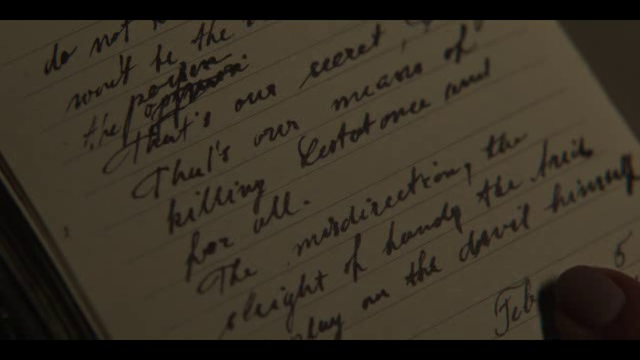 do not
won't be the
the person
That's our secret,
That's our means of
killing Lestat once and
for all.
The misdirection, the
sleight of hand, the trick
play on the devil himself
Feb